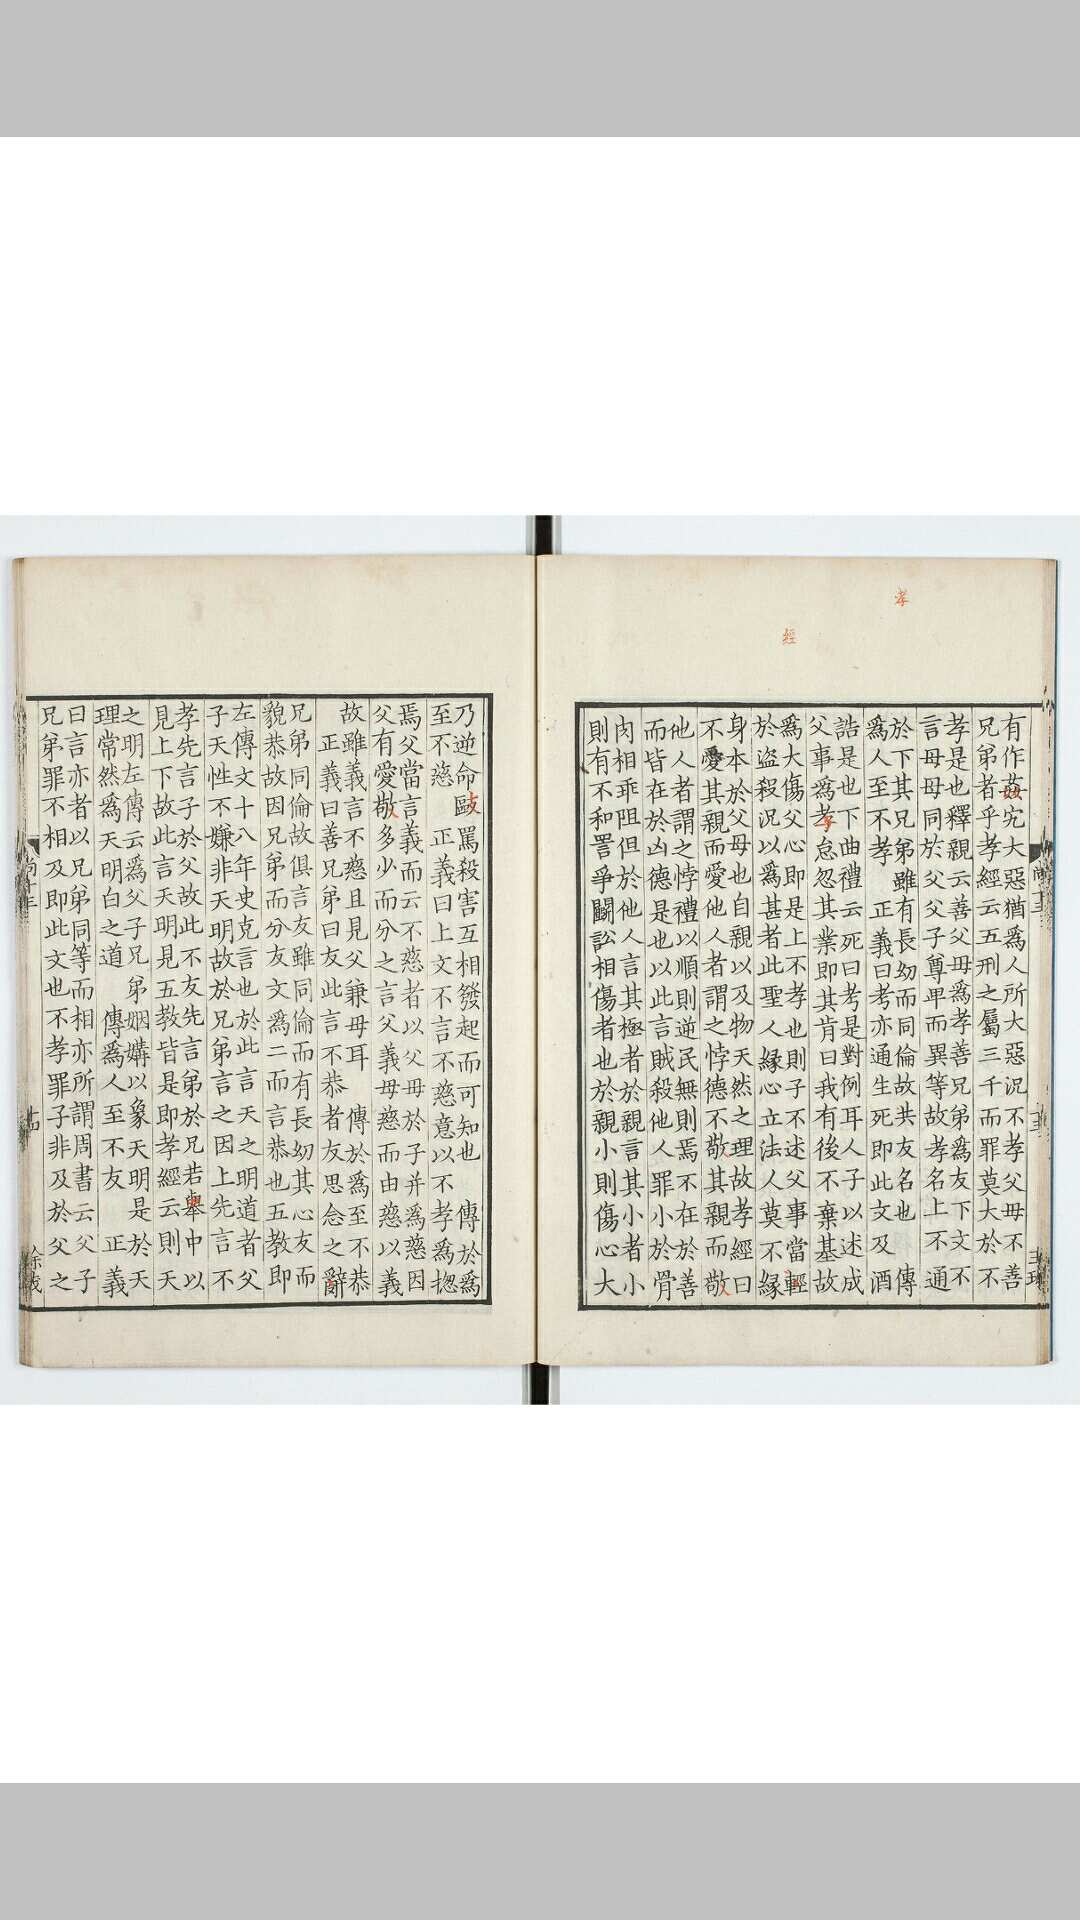 孝
經
有作姦宄大惡猶爲人所大惡況不孝父母不善
兄弟者乎孝經云五刑之屬三千而罪莫大於不
孝是也釋親云善父母爲孝善兄弟爲友下文不
言母母同於父父子尊卑而異等故孝名上不通
於下其兄弟雖有長幼而同倫故共友名也　傳
爲人至不孝　正義曰考亦通生死即此文及酒
誥是也下曲禮云死曰考是對例耳人子以述成
父事爲孝怠忽其業即其肯曰我有後不棄基故
爲大傷父心即是上不孝也則子不述父事當輕
於盜殺況以爲甚者此聖人緣心立法人莫不緣
身本於父母也自親以及物天然之理故孝經曰
不愛其親而愛他人者謂之悖德不敬其親而敬
他人者謂之悖禮以順則逆民無則焉不在於善
而皆在於凶德是也以此言賊殺他人罪小於骨
肉相乖阻但於他人言其極者於親言其小者小
則有不和詈爭鬬訟相傷者也於親小則傷心大
乃逆命敺罵殺害互相發起而可知也　傳於爲
至不慈　正義曰上文不言不慈意以不孝爲揔
焉父當言義而云不慈者以父母於子并爲慈因
父有愛敬多少而分之言父義母慈而由慈以義
故雖義言不慈且見父兼母耳　傳於爲至不恭
　正義曰善兄弟曰友此言不恭者友思念之辭
兄弟同倫故俱言友雖同倫而有長幼其心友而
貌恭故因兄弟而分友文爲二而言恭也五教即
左傳文十八年史克言也於此言天之明道者父
子天性不嫌非天明故於兄弟言之因上先言不
孝先言子於父故此不友先言弟於兄若舉中以
見上下故此言天明見五教皆是即孝經云則天
之明左傳云爲父子兄弟姻媾以象天明是於天
理常然爲天明白之道　傳爲人至不友　正義
曰言亦者以兄弟同等而相亦所謂周書云父子
兄弟罪不相及即此文也不孝罪子非及於父之
尚十三
十四